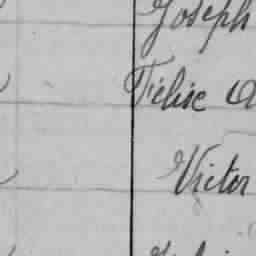 Joseph
Félise
Victor